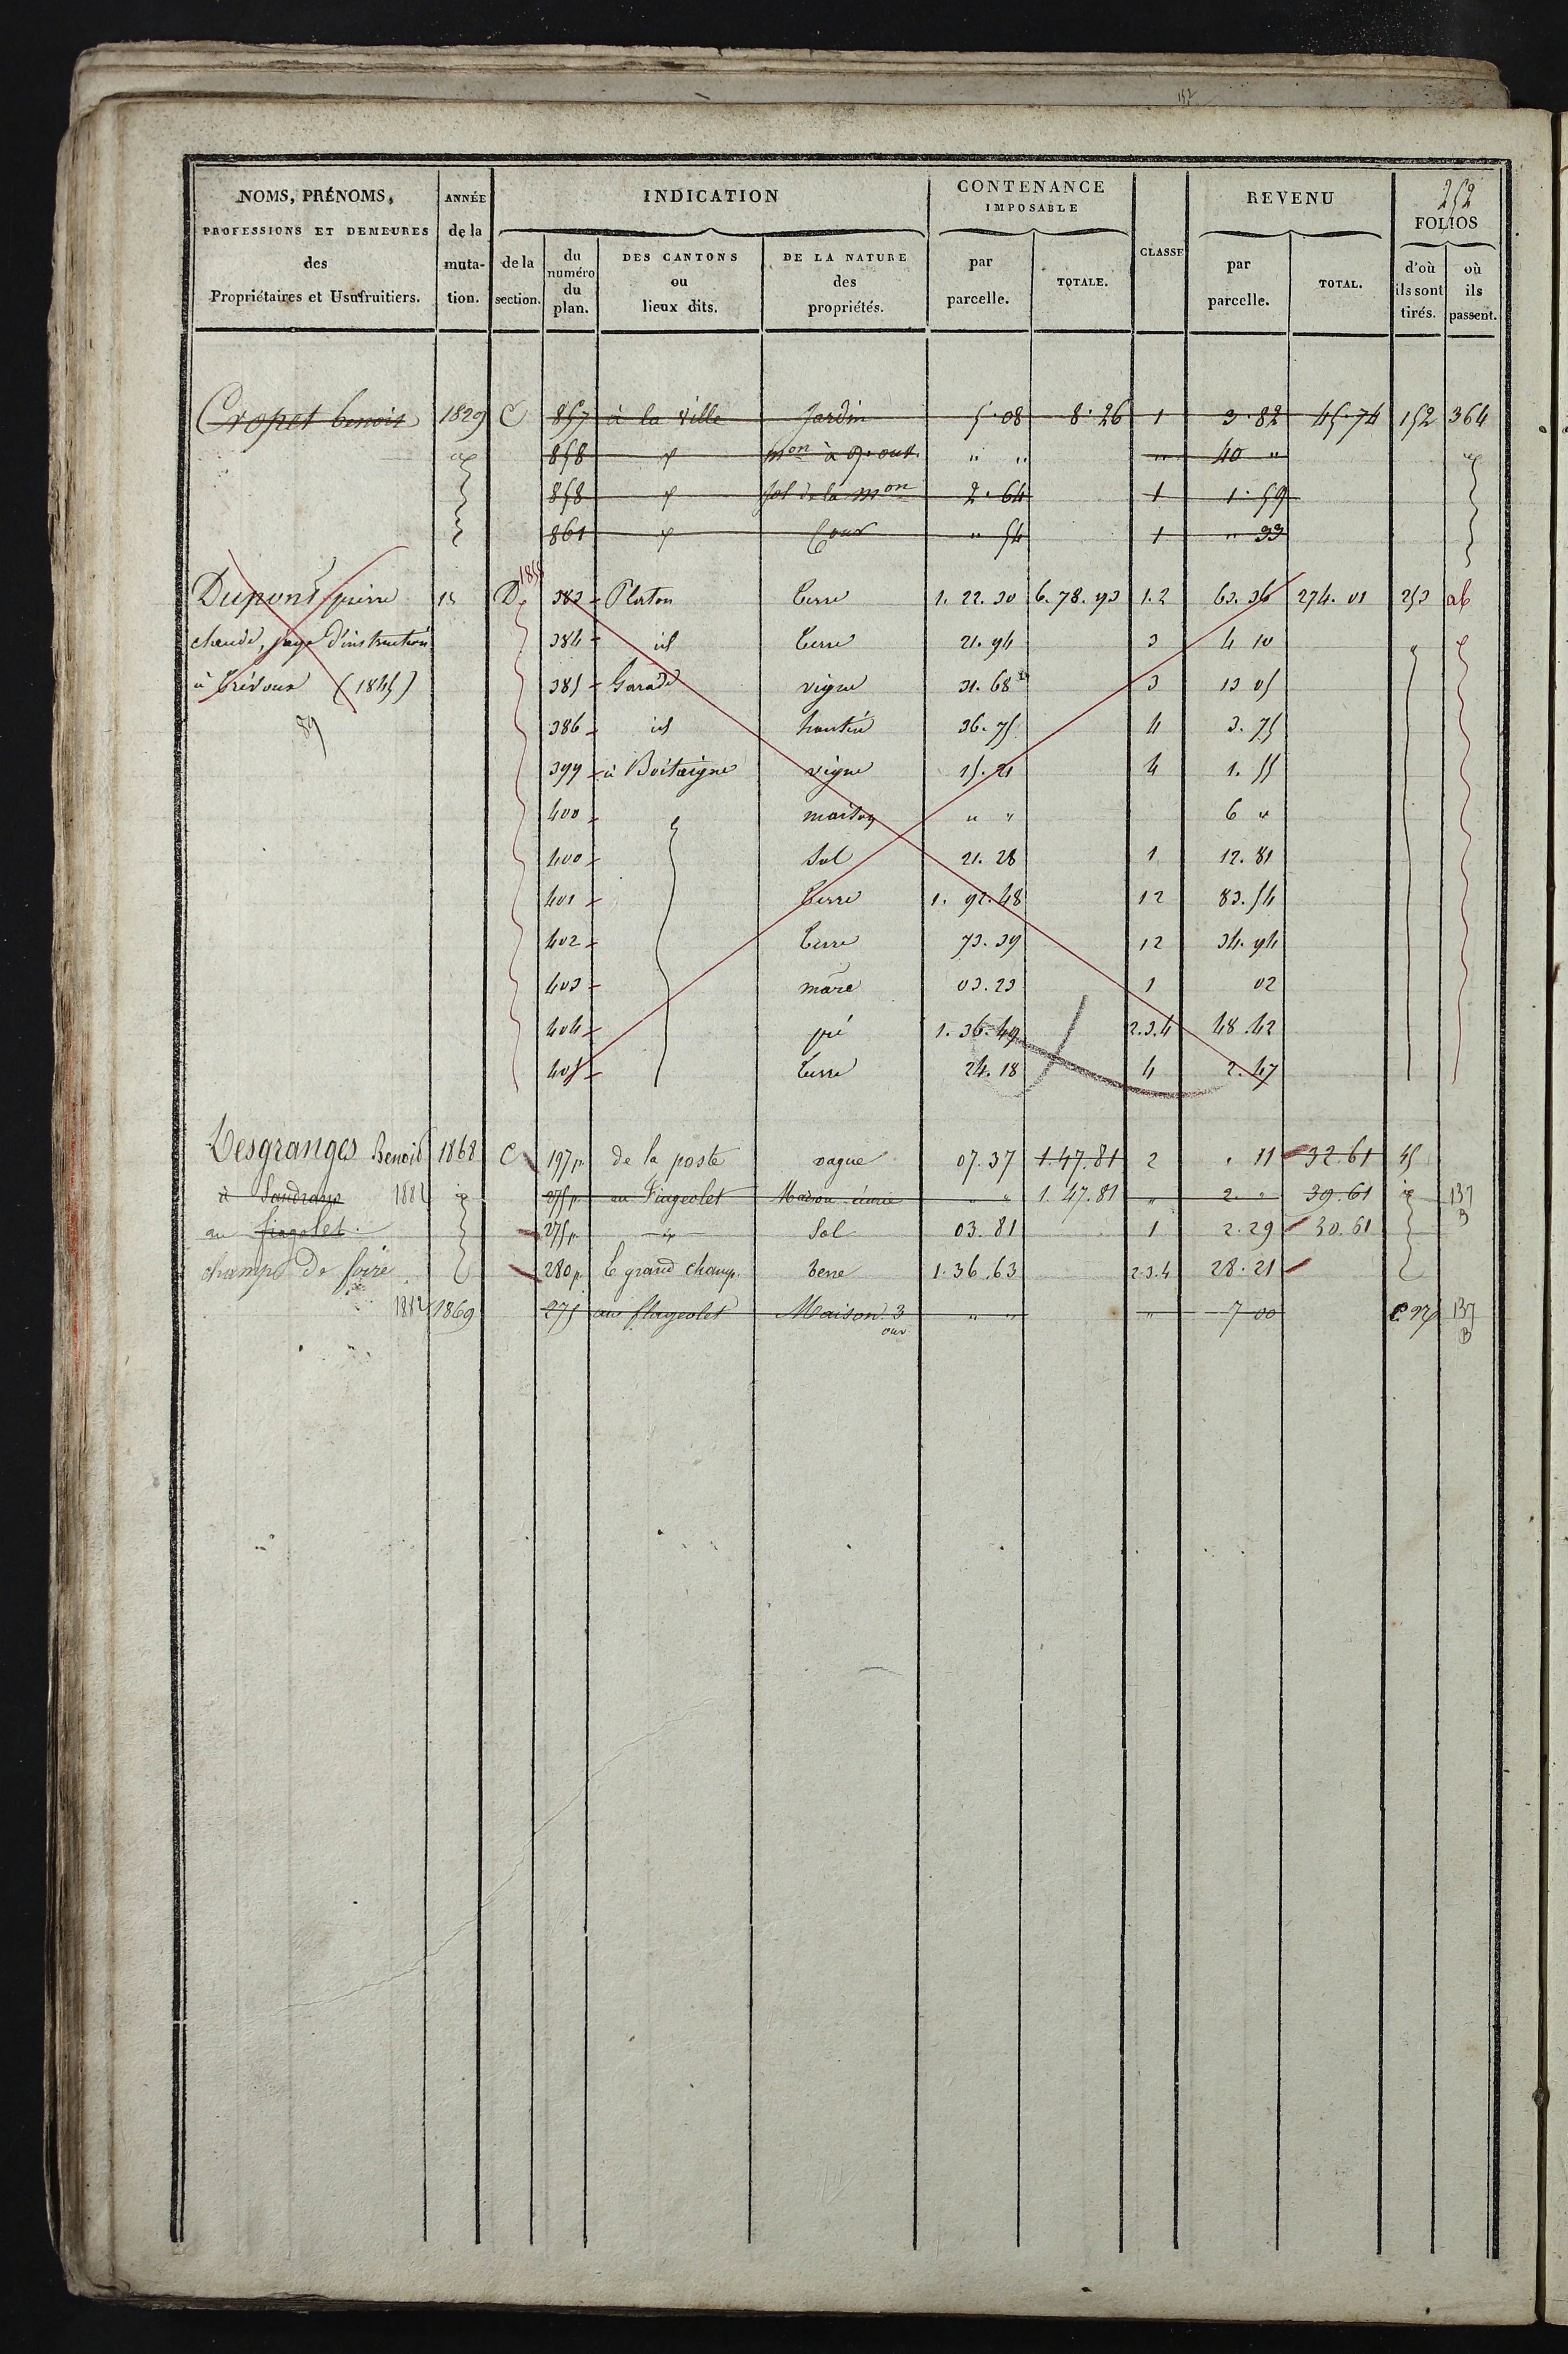 152
NOMS, PRÉNOMS, PROFESSIONS ET DEMEURES des Propriétaires et Usufruitiers.
ANNÉE de la muta-tion.
INDICATION
de la section.
du numéro du plan.
DES CANTONS ou lieux dits.
DE LA NATURE des propriétés.
CONTENANCE IMPOSABLE
par parcelle.
TOTALE.
CLASSE
REVENU
par parcelle.
TOTAL.
252
FOLIOS
d'où ils sont tirés.
où ils passent.
Cropet benoit 1829 C 857 à la ville Jardin 5.08 8.26 1 3.82 45.74 152 364
858 mon à 9. ouv. " " " 40 "
858 sol de la mon 2.64 1 1.59
861 Cour " 54 1 " 33
1855
Dupont pierre 15 D 383 Platon terre 1.22.30 6.78.93 1.2 63.36 274.01 253 ab
claude, juge d'instruction 384 id terre 21.94 3 4 10
à Trévoux (1845) 385 Garade vigne 31.68 3 13 05
89 386 id hautin 36.75 4 3.75
399 à Boitaigne vigne 15.21 4 1.55
400 maison " " 6 "
400 Sol 21.28 1 12.81
401 terre 1.92.48 12 83.54
402 terre 73.39 12 34.94
403 mare 03.23 1 02
404 pré 1.36.49 2.3.4 48.42
405 terre 24.18 4 2.47
Desgranges Benoit 1868 C 197p de la poste vague 07.37 1.47.81 2 . 11 32.61 45
à Sandrans 1882 id 275p au Flageolet Maison écurie " " 1.47.81 " 2 " 39.61 id 137 B
au 275p id Sol 03.81 1 2.29 30.61
champ de foire 280p Le grand champ terre 1.36.63 2.3.4 28.21
1882 1869 275 au flageolet Maison 3 ouv " " " 7 00 137 B